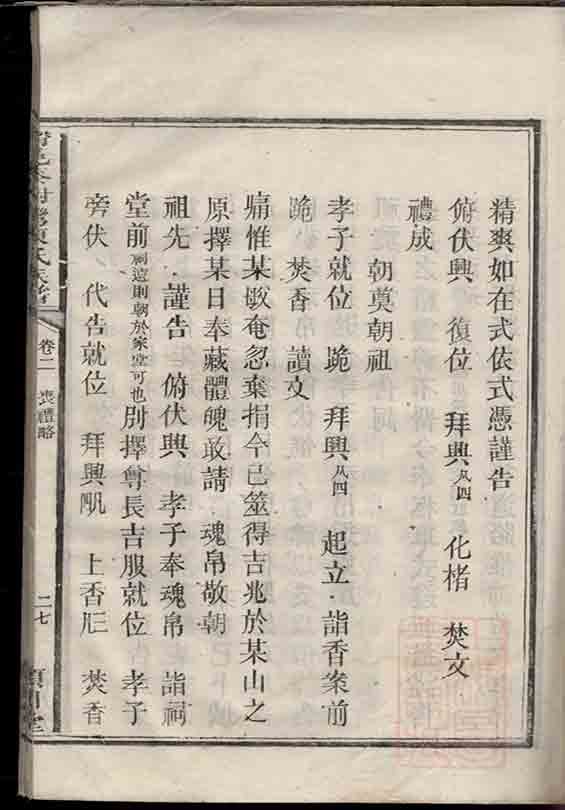 精爽如在式依式憑謹告
俯伏興　復位　拜興凡四　化楮　焚文
禮成
朝奠朝祖
孝子就位　跪　拜興凡四　起立　詣香案前
跪　焚香　讀文
痛惟某畝奄忽棄捐今已筮得吉兆於某山之
原擇某日奉藏體魄敢請　魂帛敬朝
祖先　謹告　俯伏興　孝子奉魂帛　詣祠
堂前祠遠則朝於家堂可也別擇尊長吉服就位　孝子
旁伏　代告就位　拜興　上香　焚香
氏族譜　卷二　喪禮略　二七　堂